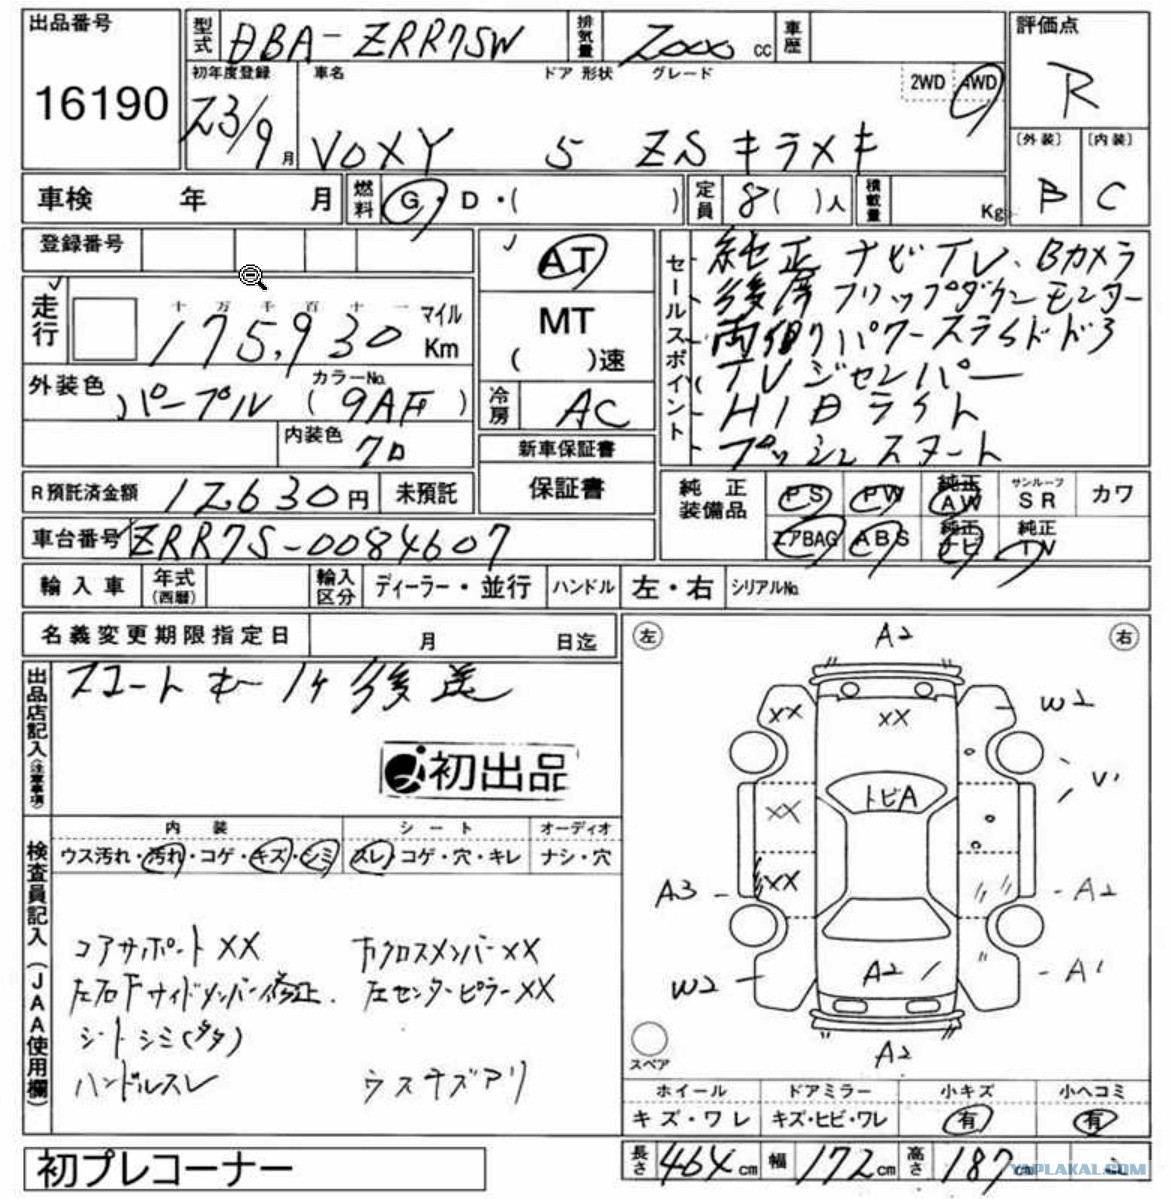 出品番号
16190
型式 DBA-ZRR75W
排気量 2000 cc
車歴
評価点
R
初年度登録
23/9 月
車名 ドア 形状 グレード
2WD 4WD
VOXY 5 ZS キラメキ
〔外装〕 〔内装〕
B C
車検 年 月
燃料 G・D・( )
定員 8( )人
積載量 Kg
登録番号
AT
MT
( )速
走行
十 万 千 百 十 一
175,930
マイル
Km
外装色 パープル
カラーNo.
(9AF)
内装色
クロ
冷房 AC
新車保証書
保証書
セールスポイント
純正 ナビTV、Bカメラ
後席 フリップダウンモニター
両側パワースライドドア
TVジャンパー
HIDライト
プッシュスタート
R預託済金額 12,630円 未預託
車台番号 ZRR75-0084607
純正装備品
PS PW 純正AW サンルーフSR カワ
エアBAG ABS 純正ナビ 純正TV
輸入車 年式(西暦) 輸入区分 ディーラー・並行 ハンドル 左・右 シリアルNo.
名義変更期限指定日 月 日迄
出品店記入(注意事項)
スマートキー1ケ後送
初出品
検査員記入(JAA使用欄)
内装 シート オーディオ
ウス汚れ・汚れ・コゲ・キズ・シミ スレ・コゲ・穴・キレ ナシ・穴
コアサポートXX
左右Fサイドメンバー修正.
シートシミ(多々)
ハンドルスレ
カクロスメンバーXX
左センターピラーXX
ウスキズアリ
左 右
A2
XX XX W2
V'
トビA
XX
XX
A3 A2
W2 A2 A1
A2
スペア
ホイール ドアミラー 小キズ 小ヘコミ
キズ・ワレ キズ・ヒビ・ワレ 有 有
初プレコーナー
長さ 464cm 幅 172cm 高さ 187cm
YAPLAKAL.COM